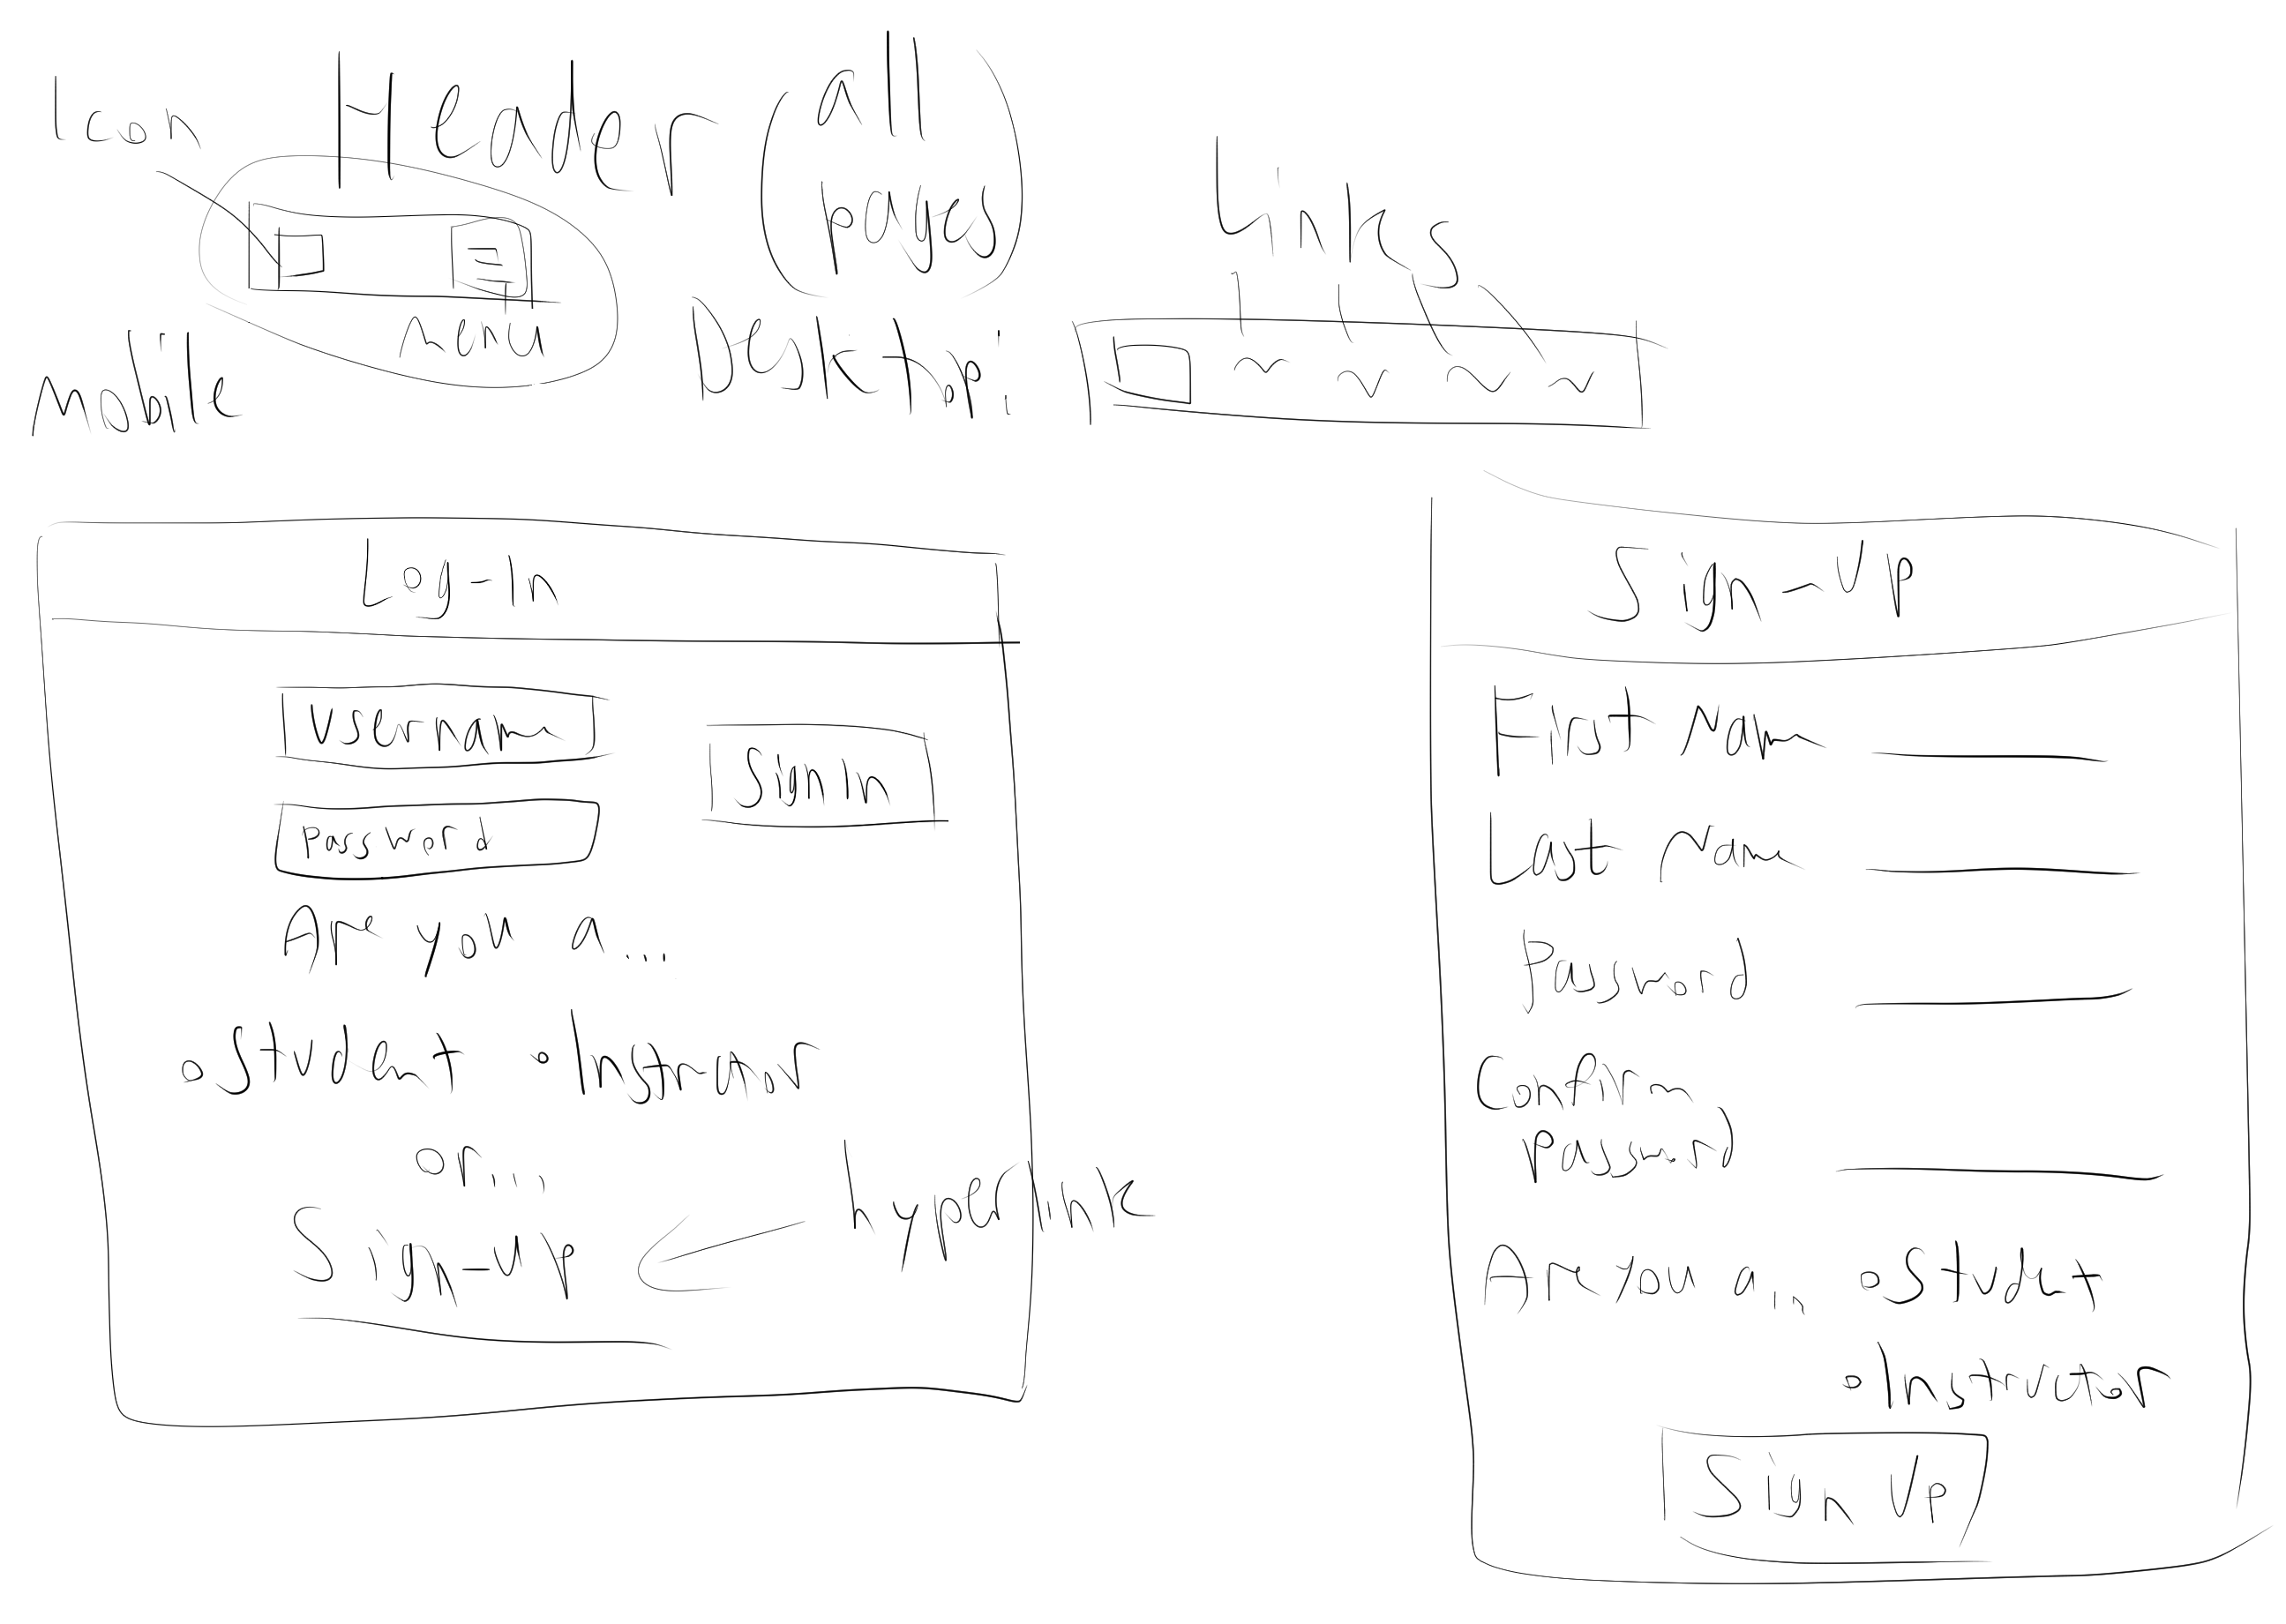 Icon
Header (all pages)
Links
Menu
Mobile
Desktop:
Log-In
Username
Sign In
Password
Are you a...
Student Instructor
or...
Sign-up
hyperlink
Sign-Up
First Name
Last Name
Password
Confirm
password
Are you a... Student
Instructor
Sign Up